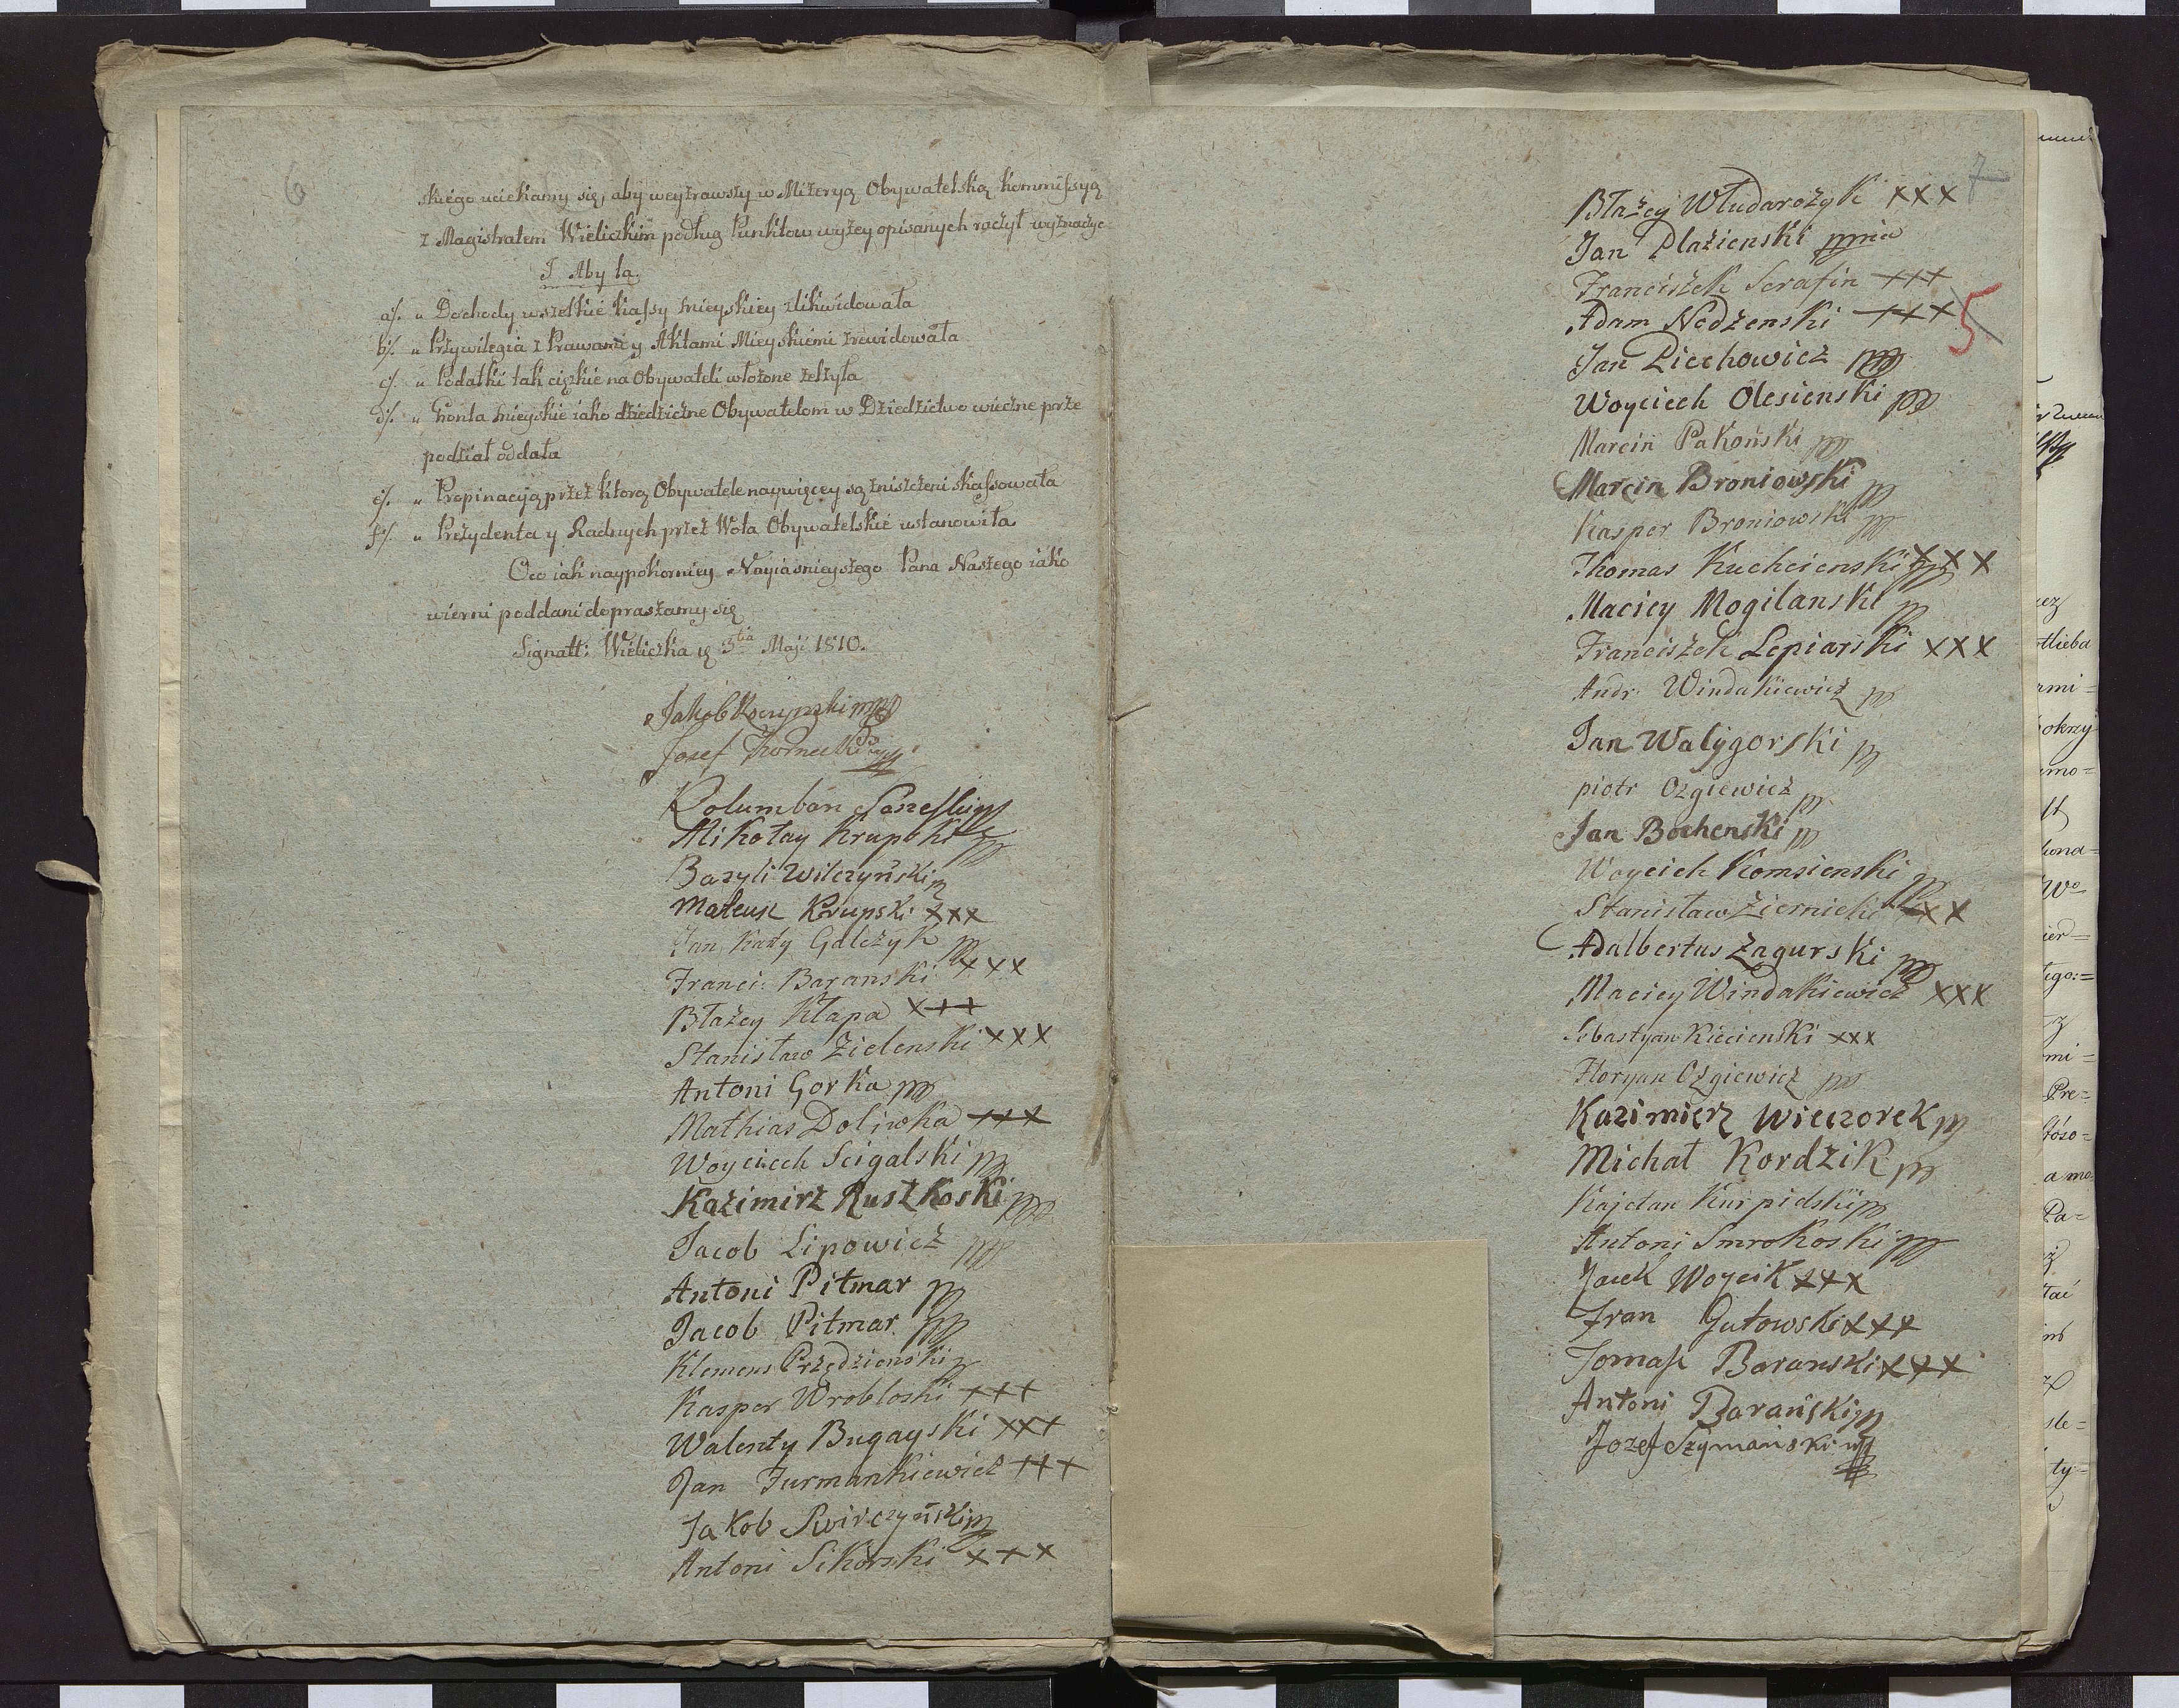 6
skiego uciekamy się, aby weyzrawszy w Mizeryą Obywatelską Kommissyą
z Magistratem Wielickim podług Punktow wyżey opisanych raczył wyznaczyc
I Aby ta.
a/. " Dochody wszelkie kassy mieyskiey zlikwidowała
b/. " Przywilegia z Prawami y Aktami Mieyskiemi zrewidowała
c/. " Podatki tak cięzkie na Obywateli włożone zelżyła
d/. " Gronta mieyskie iako dziedziczne Obywatelom w Dziedzictwo wieczne prze
podział oddała
e/. " Propinacyą przez ktorą Obywatele naywięcey są zniszczeni skassowała
f/. " Prezydenta y Radnych przez Wota Obywatelskie ustanowiła
Oco iak naypokorniey Nayiasnieyszego Pana Naszego iako
wierni poddani dopraszamy się
Signatt: Wieliczka d 3tia Maji 1810.
Jakob
Josef
Kolumban
Mikołay Krupski
Bazyli Wilczyński
Mateusz Krupski xxx
Jan Kanty Galczyk
Franci: Baranski xxx
Błażey Kłapa xxx
Stanisław Zielenski xxx
Antoni Gorka
Mathias Doliwka xxx
Woyciech Scigalski
Kazimirz Ruszkoski
Jacob Lipowicz
Antoni Pitmar
Jacob Pitmar
Klemens Przędzienski
Kasper Wrobloski xxx
Walenty Bugayski xxx
Jan Furmankiewicz xxx
Jakob Swirczyński
Antoni Sikorski xxx
7
Błażey Wludarczyk xxx
Jan Plazienski mpria
Franciszek Serafin xxx
Adam Nedzenski xxx
5
Jan Piechowicz
Woyciech Olesienski
Marcin Pakoński
Marcin Broniowski
Kasper Broniowski
Thomas Kuchcienski xxx
Maciey Mogilanski
Franciszek Lepiarski xxx
Andr. Windakiewicz
Jan Walygorski
piotr Ozgiewicz
Jan Bochenski
Woyciech Komsienski
Stanisław Ziernicki xxx
Adalbertus Zagurski
Maciey Windakiewicz xxx
Sebastyan Kiecienski xxx
Floryan Ozgiewicz
Kazimierz Wieczorek
Michał Kordzik
Kajetan Kurpidski
Antoni Smrokoski
Jacek Woycik xxx
Fran Gutowski xxx
Tomasz Baranski xxx
Antoni Barański
Jozef Szymański